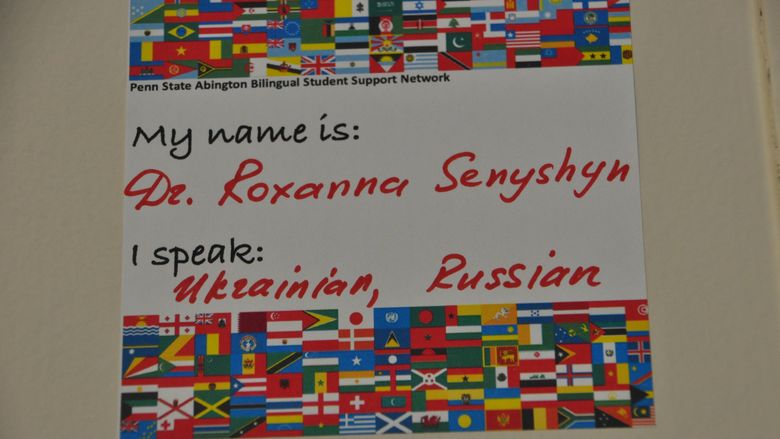 Penn State Abington Bilingual Student Support Network
My name is:
Dr. Roxanna Senyshyn
I speak:
Ukrainian, Russian